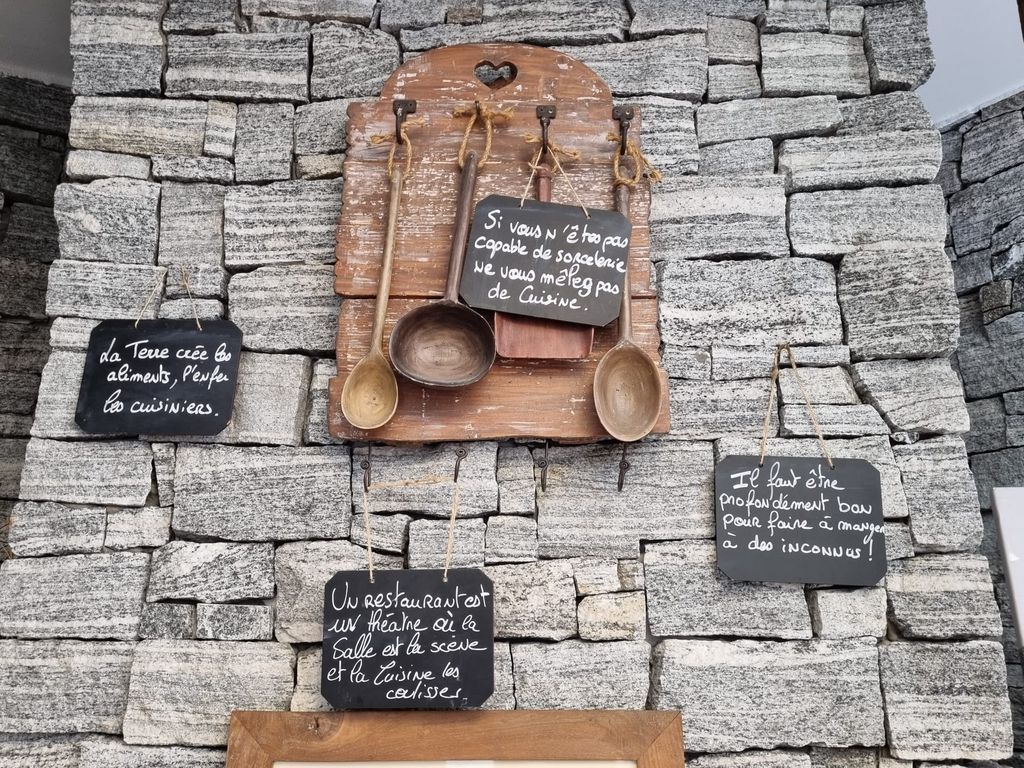 Si vous n'êtes pas
capable de sorcelerie
ne vous mêlez pas
de Cuisine.
La Terre crée les
aliments, l'enfer
les cuisiniers.
Il faut être
profondément bon
pour faire à manger
à des inconnus!
Un restaurant est
un théatre où la
Salle est la scène
et la Cuisine les
coulisses.